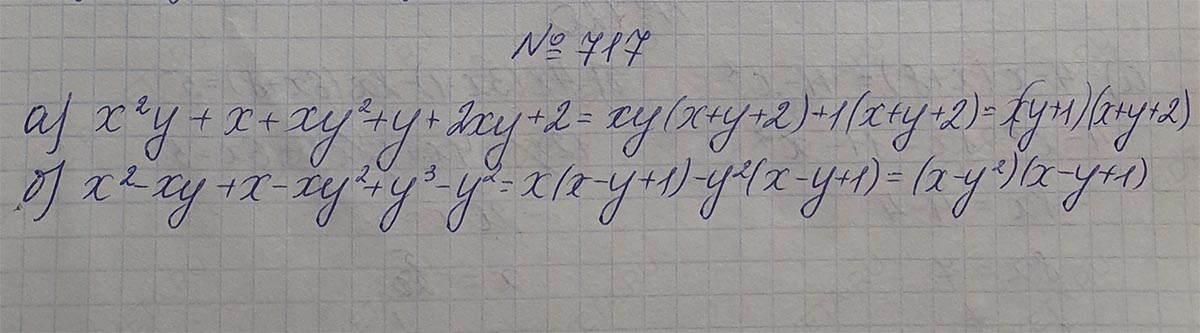 № 717
а) x²y + x + xy² + y + 2xy + 2 = xy(x+y+2)+1(x+y+2) = (xy+1)(x+y+2)
б) x² - xy + x - xy² + y³ - y² = x(x-y+1) - y²(x-y+1) = (x-y²)(x-y+1)